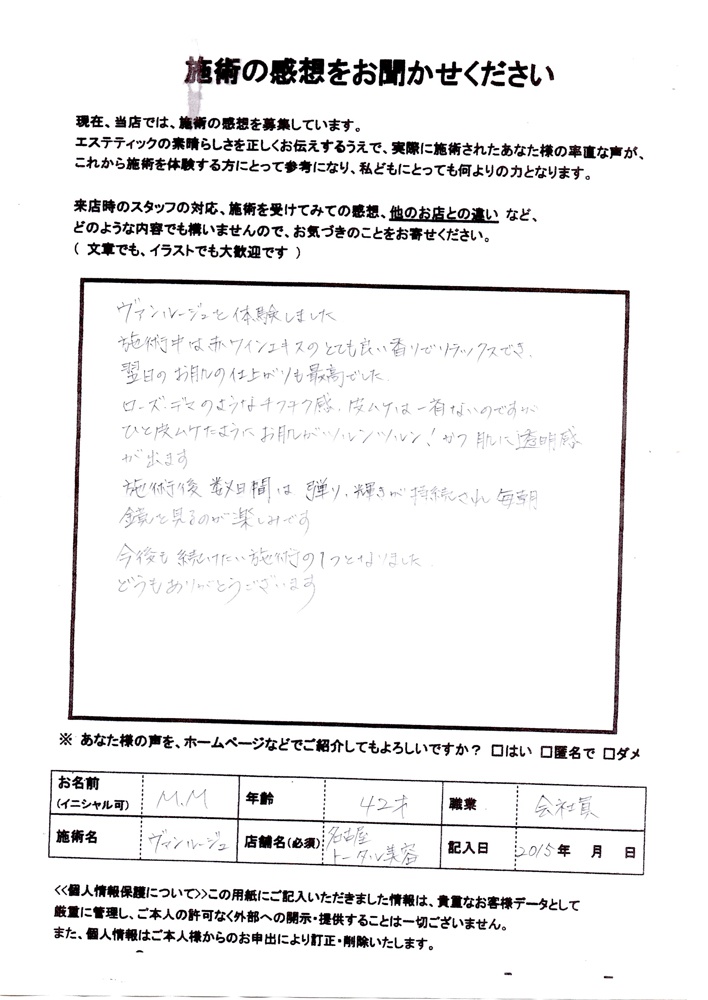 施術の感想をお聞かせください
現在、当店では、施術の感想を募集しています。
エステティックの素晴らしさを正しくお伝えするうえで、実際に施術されたあなた様の率直な声が、
これから施術を体験する方にとって参考になり、私どもにとっても何よりの力となります。
来店時のスタッフの対応、施術を受けてみての感想、他のお店との違い など、
どのような内容でも構いませんので、お気づきのことをお寄せください。
( 文章でも、イラストでも大歓迎です )
ヴァンルージュを体験しました
施術中は赤ワインエキスのとても良い香りでリラックスでき、
翌日のお肌の仕上がりも最高でした
ローズ・デマのようなチクチク感、皮ムケは一切ないのですが
ひと皮ムケたようにお肌がツルンツルン!かつ肌に透明感
が出ます
施術後 数日間は 弾り、輝きが持続され 毎朝
鏡を見るのが楽しみです
今後も続けたい施術の1つとなりました
どうもありがとうございます
※ あなた様の声を、ホームページなどでご紹介してもよろしいですか? □はい □匿名で □ダメ
お名前 (イニシャル可) M.M 年齢 42才 職業 会社員
施術名 ヴァンルージュ 店舗名(必須) 名古屋 トータル美容 記入日 2015年 月 日
<<個人情報保護について>>この用紙にご記入いただきました情報は、貴重なお客様データとして
厳重に管理し、ご本人の許可なく外部への開示・提供することは一切ございません。
また、個人情報はご本人様からのお申出により訂正・削除いたします。